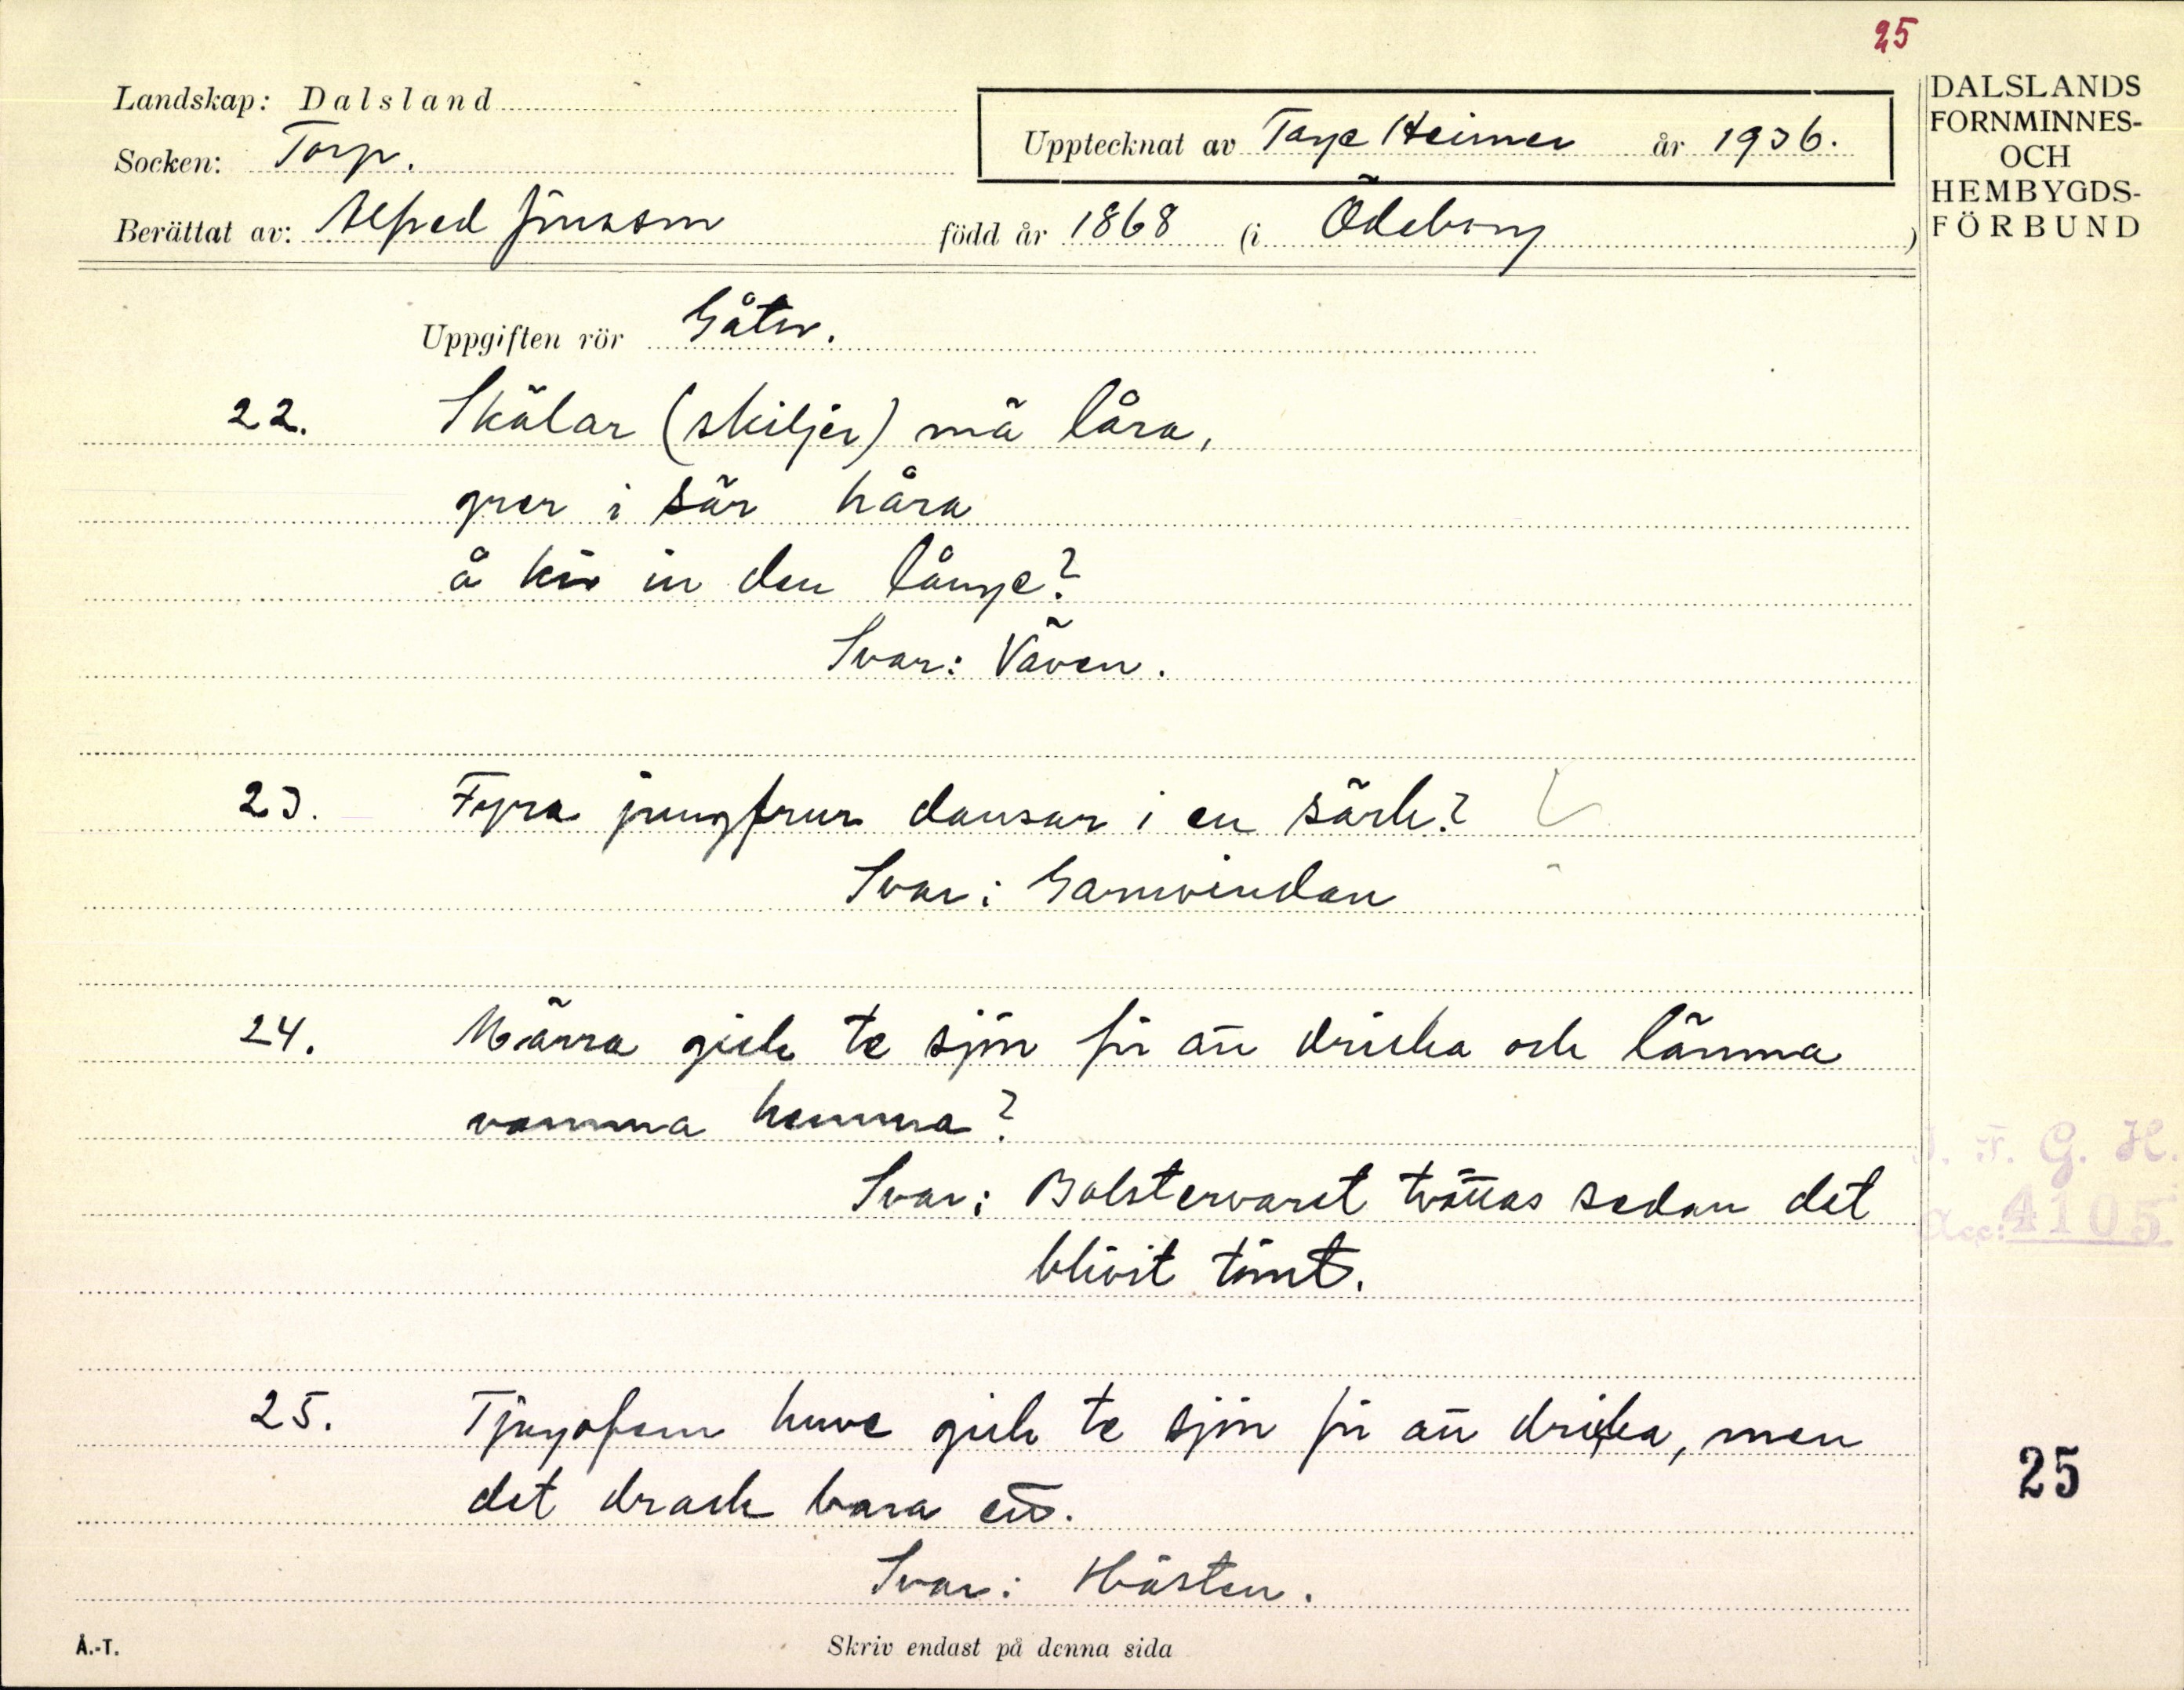 25
Landskap: Dalsland
Socken: Torp.
Upptecknat av Tage Heimer år 1936.
Berättat av: Alfred Jönsson född år 1868 (i Ödeborg)
DALSLANDS
FORNMINNES-
OCH
HEMBYGDS-
FÖRBUND
Uppgiften rör Gåtor.
22. Skälar (skiljer) mä låra,
grer i sär håra
å kör in den långe?
Svar: Väven.
23. Fyra jungfrur dansar i en särk?
Svar: Garnvindan
24. Märra gick te sjön för att dricka och lämna
vamma hemma?
Svar: Bolstervaret tvättas sedan det
blivit tömt.
25. Tjugofem huve gick te sjön för att dricka, men
det drack bara ett.
Svar: Hästen.
I. F. G. H.
Acc: 4105
25
Å.-T.
Skriv endast på denna sida